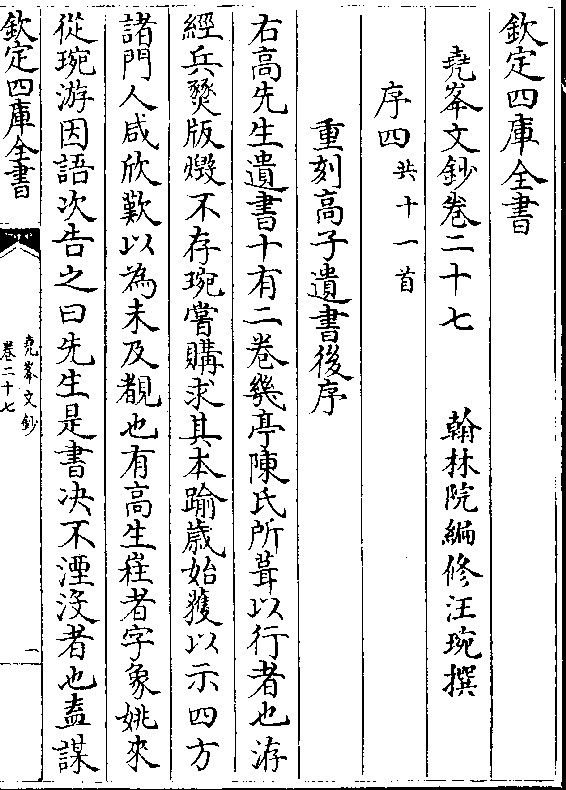 欽定四庫全書
堯峯文鈔卷二十七　翰林院編修汪琬撰
序四共十一首
重刻高子遺書後序
右高先生遺書十有二卷幾亭陳氏所葺以行者也洊
經兵燹版燬不存琬嘗購求其本踰歲始獲以示四方
諸門人咸欣歎以為未及覩也有高生嵀者字象姚來
從琬游因語次告之曰先生是書决不湮沒者也盍謀
欽定四庫全書
堯峯文鈔
卷二十七
一